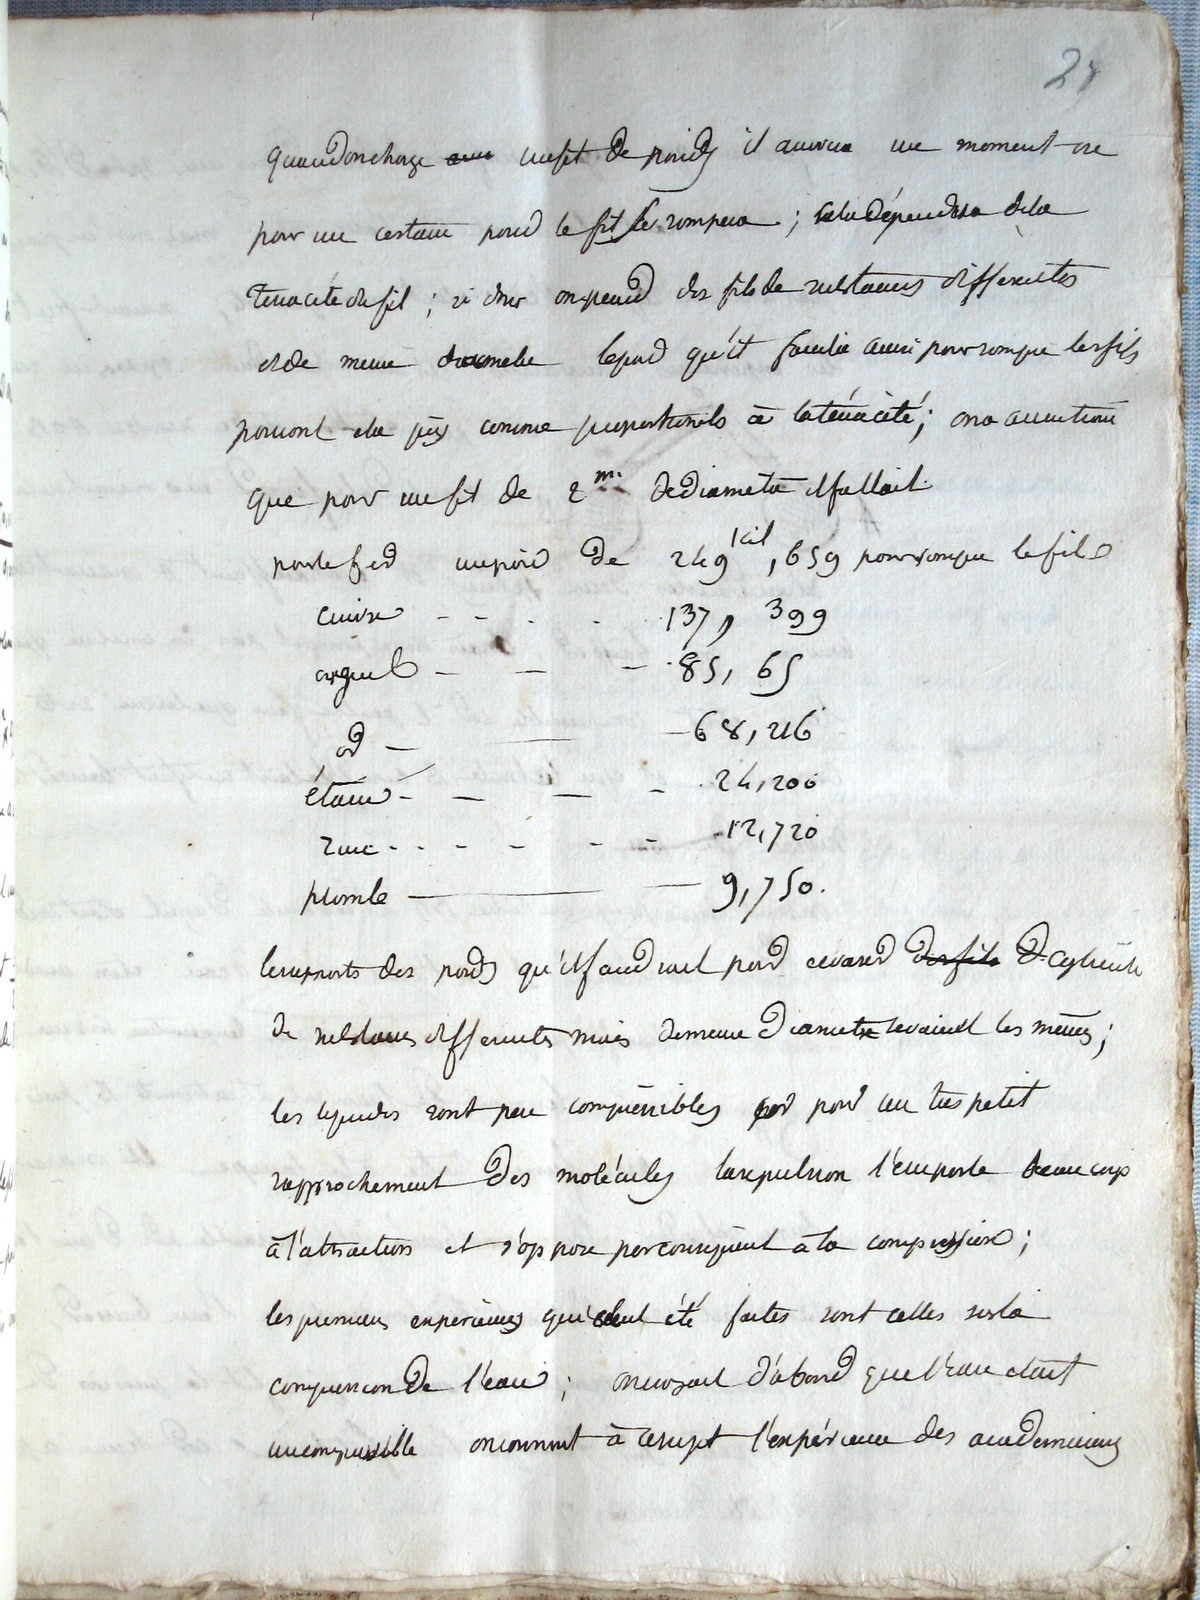 quand on charge un fil de poids il arrivera un moment ou
pour un certain poid le fil se rompera ; cela dépendra de la
tenacité du fil ; si donc on prend des fils de substances differentes
et de meme diametre le poid qu'il faudra pour rompre les fils
pouront etre pris comme proportionels à la ténacité ; on a
que pour un fil de 2m. de diametre il fallait
pour le fer un poid de 249kil,659 pour rompre le fil
cuivre - - - - 137, 399
argent - - - 85, 65
or - - - 68,216
étain - - - - 24,200
zinc - - - - - - 12,720
plomb - - 9,750.
les rapports des poids qu'il faudrait pour des fils de cylindre
de substances differentes mais de meme diametre seraient les mêmes ;
les liquides sont peu compressibles pour un tres petit
rapprochement des molécules la repulsion l'emporte beaucoup
à l'attraction et s'oppose par consequent à la compression ;
les premieres experiences qui aient été faites sont celles sur la
compression de l'eau ; on croyait d'abord que l'eau etait
incompressible on connait à ce sujet l'expérience des academiciens